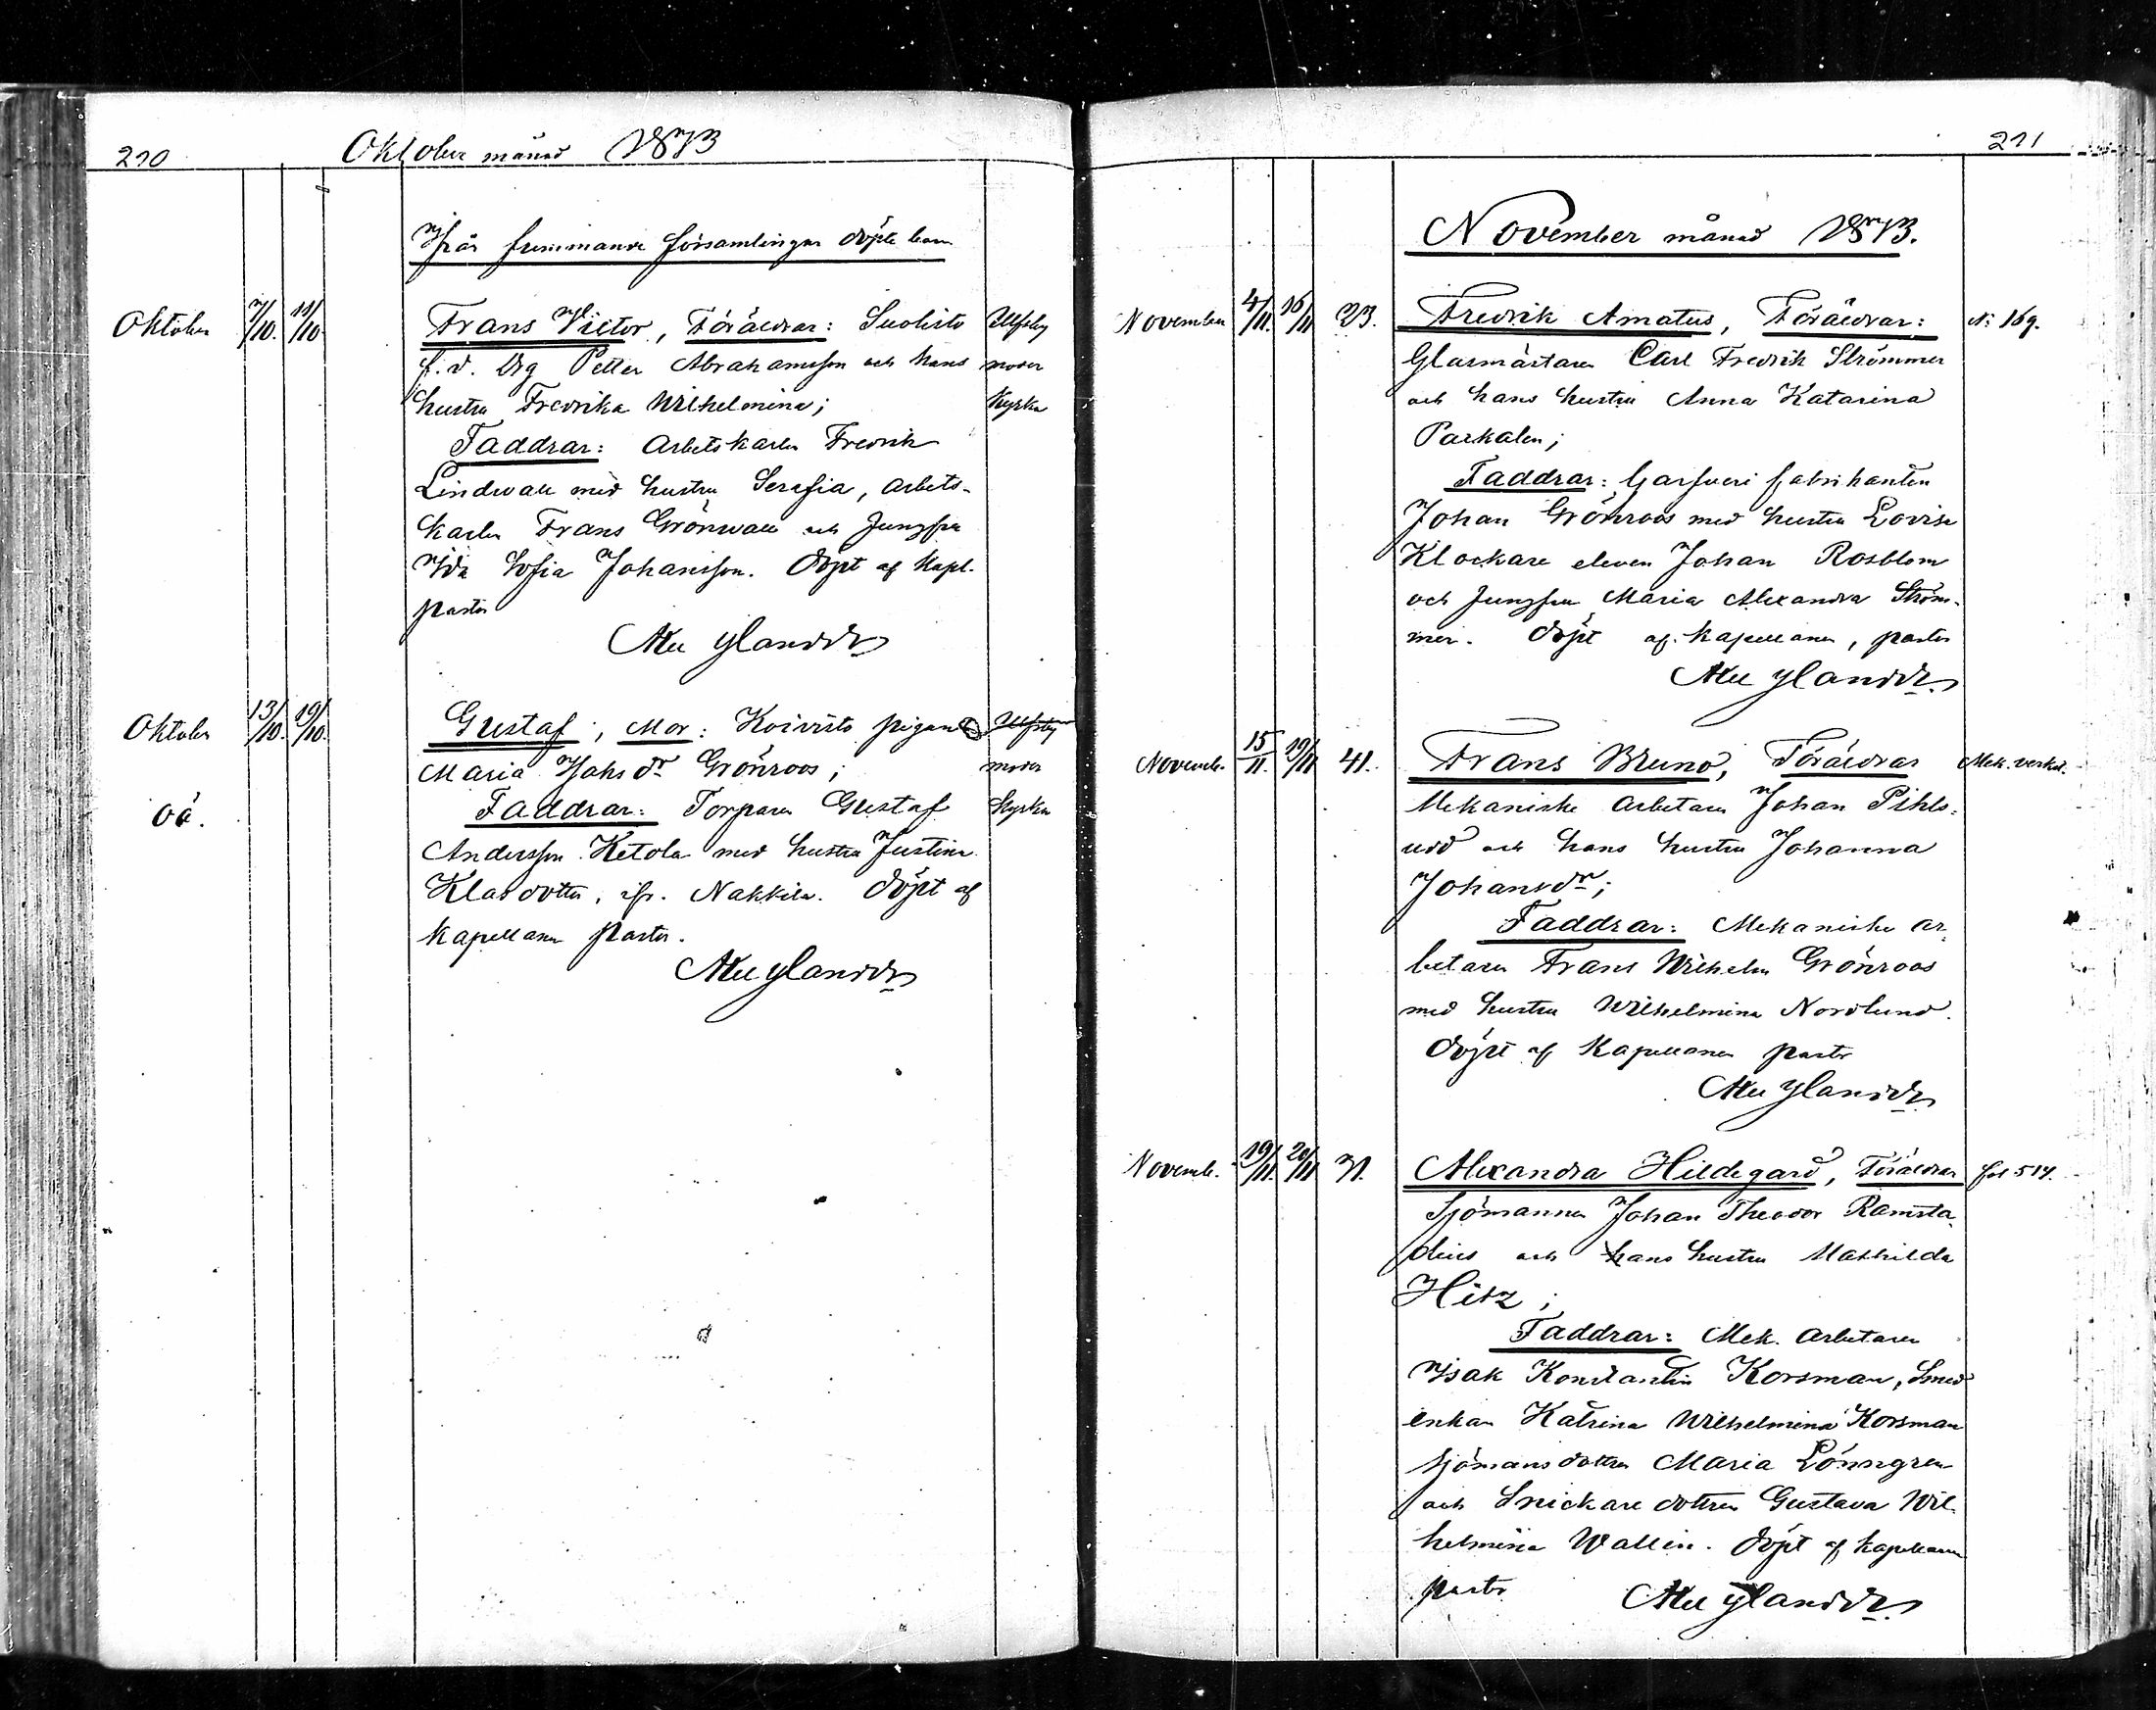 210 Oktober månad 1873
Ifrån främmande församlingar döpte barn
Oktober 7/10. 11/10 Frans Victor, Föräldrar: Suolisto Ulfsby
f. d. Drg Petter Abrahamsson och hans moder
hustru Fredrika Wilhelmina; kyrka
Faddrar: Arbetskarlen Fredrik
Lindwall med hustru Serafia, arbets-
karlen Frans Grönwall och Jungfru
Ida Sofia Johansson. Döpt af Kapl.
pastor
Ylander
Oktober 13/10. 19/10. Gustaf, Mor: Koivisto pigan Ulfsby
Maria Johs dr Grönroos; moder
oä. Faddrar: Torparen Gustaf kyrka
Andersson Ketola med hustru Justina
Klasdotter, ifr. Nakkila. Döpt af
kapellanen Pastor.
Ylander
211
November månad 1873.
November 4/11. 16/11 23. Fredrik Amatus, Föräldrar: N: 169.
Glasmästaren Carl Fredrik Strömmer
och hans hustru Anna Katarina
Parkalen;
Faddrar: Garfveri fabrikanten
Johan Grönroos med hustru Lovisa
Klockare eleven Johan Rosblom
och Jungfru Maria Alexandra Ström-
mer. Döpt af kapellanen, pastor
Ylander
Novemb. 15/11. 19/11 41. Frans Bruno, Föräldrar Mek. verkst.
Mekaniske arbetaren Johan Pihls-
udd och hans hustru Johanna
Johansdr;
Faddrar: Mekaniske ar-
betaren Frans Wilhelm Grönroos
med hustru Wilhelmina Nordlund.
Döpt af Kapellanen pastor
Ylander
Novemb. 19/11. 20/11 31. Alexandra Hildegard, Föräldrar fol 514.
Sjömannen Johan Theodor Ramsta-
dius och hans hustru Mathilda
Hitz;
Faddrar: Mek. arbetaren
Isak Konstantin Korsman, Smed
enkan Katrina Wilhelmina Korsman
Sjömansdottren Maria Lönngren
och Snickare dottren Gustava Wil-
helmina Wallin. Döpt af kapellanen
pastor Ylander